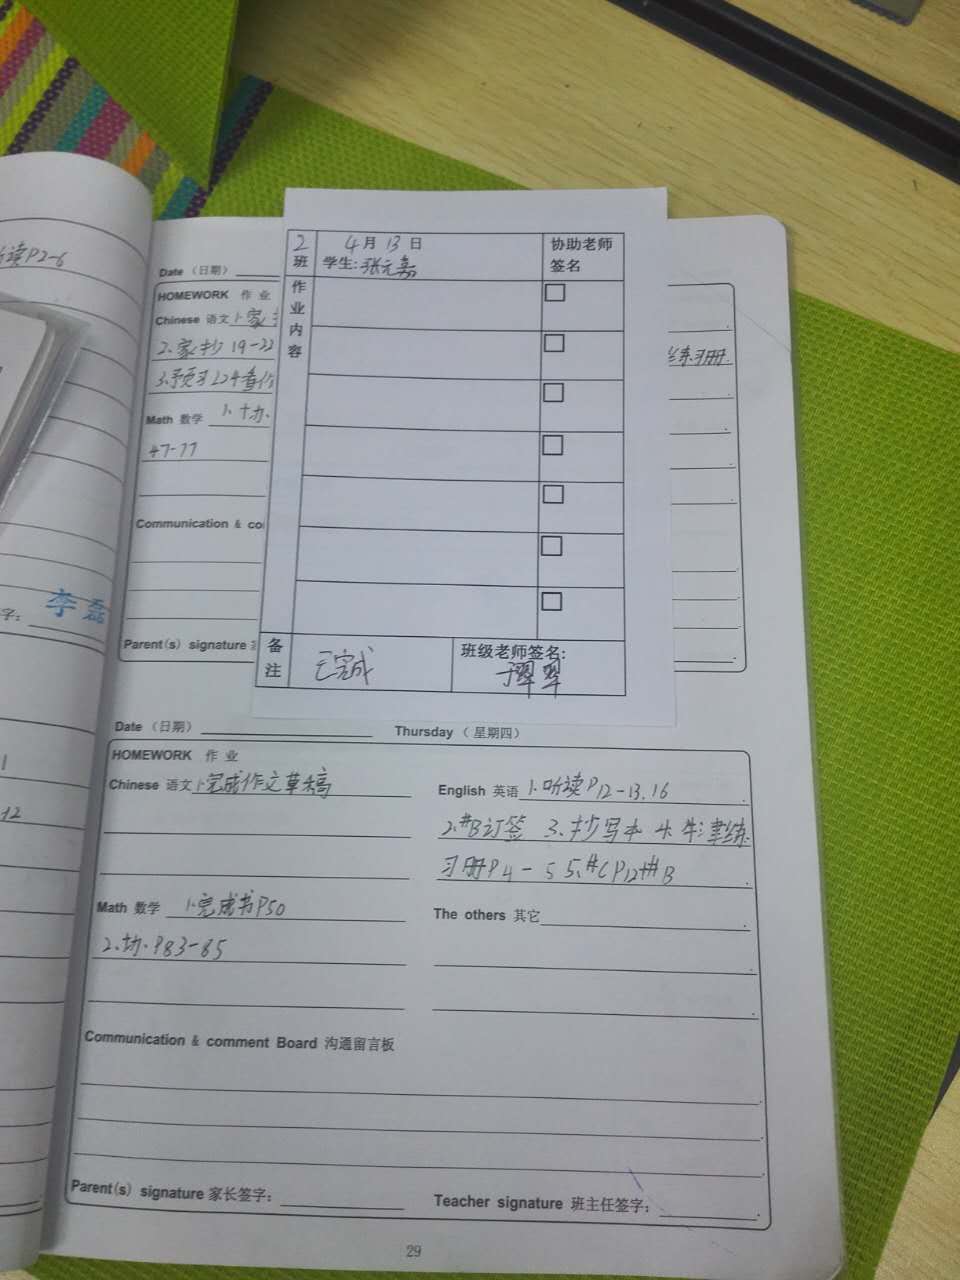 听读P2-6
李磊
字:
12
Date （日期）
HOMEWORK 作 业
Chinese 语文 1、家
2、家抄 19-22
3、预习L24查作
Math 数学 1、十办、
47-77
Communication & co
Parent(s) signature
练习册.
2 班
4月 13 日
学生: 张元嘉
协助老师签名
作业内容
备注
已完成
班级老师签名:
于翠翠
Date （日期） Thursday （ 星期四）
HOMEWORK 作 业
Chinese 语文 1、完成作文草稿
English 英语 1、听读P12-13、16
2、#B订签 3、抄写本 4、牛津练
习册P4-5 5、#CP12+#B
Math 数学 1、完成书P50
The others 其它
2、P83-85
Communication & comment Board 沟通留言板
Parent(s) signature 家长签字:
Teacher signature 班主任签字:
29